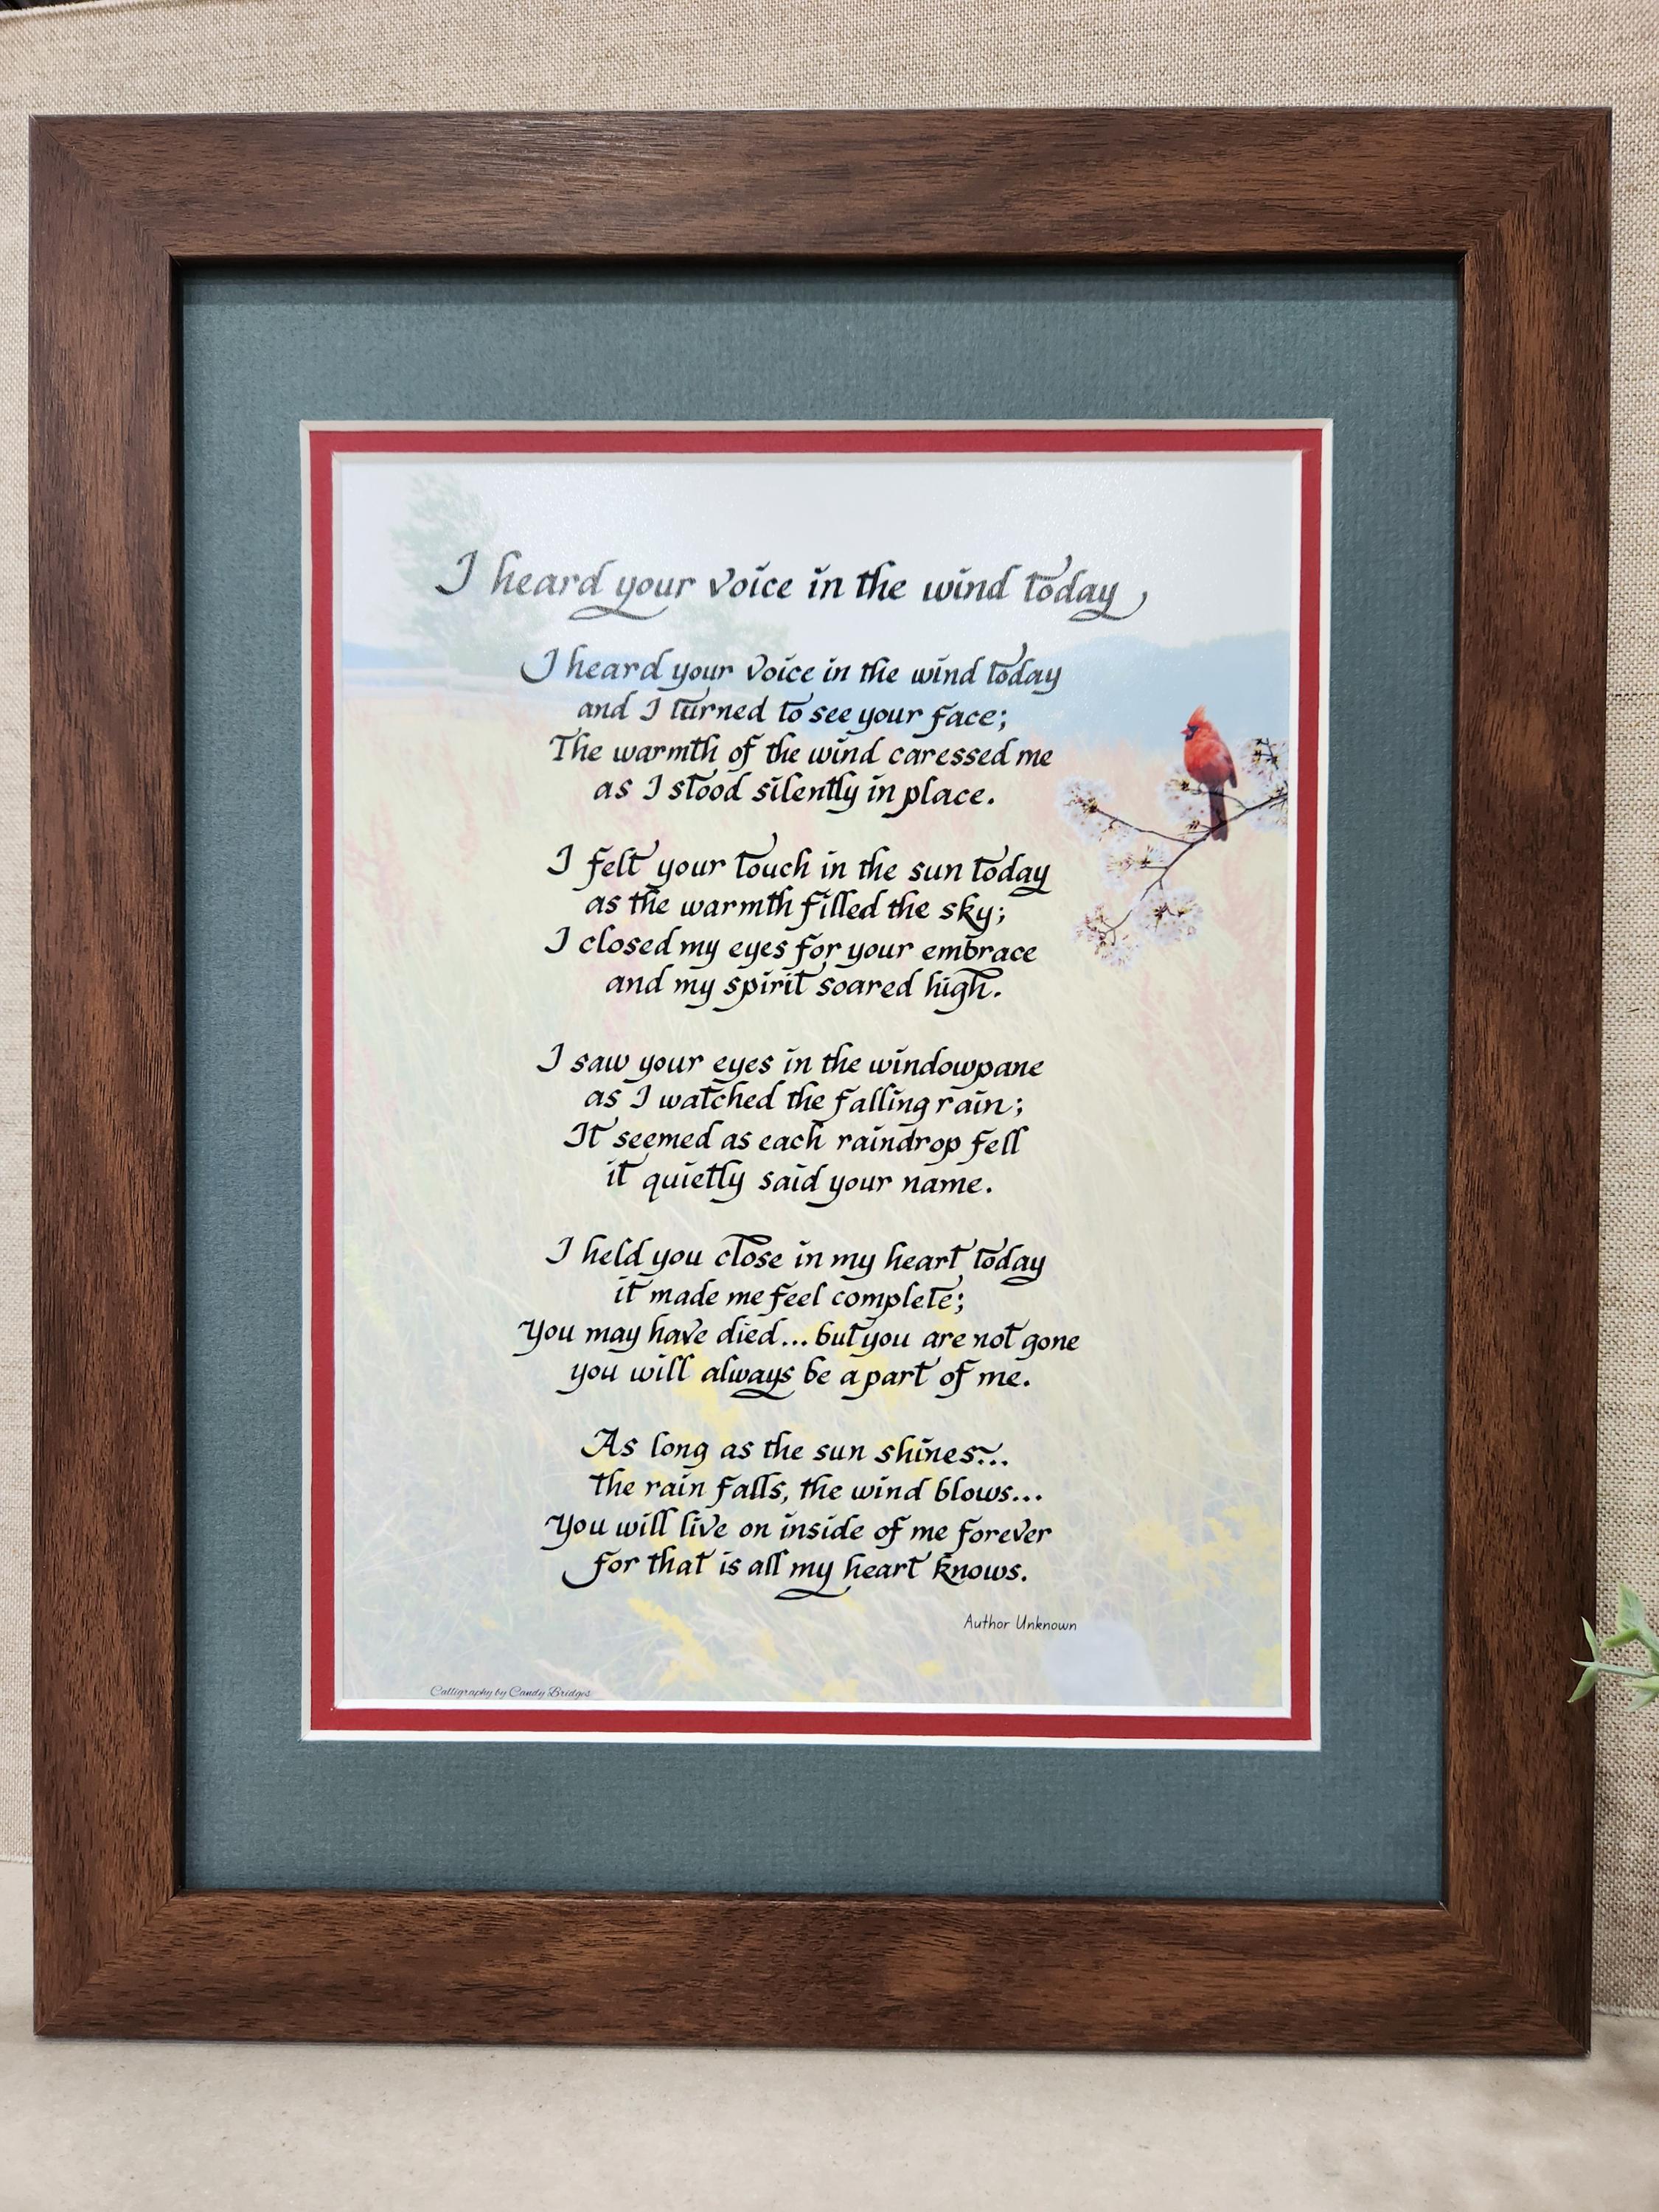 I heard your voice in the wind today
I heard your voice in the wind today
and I turned to see your face;
The warmth of the wind caressed me
as I stood silently in place.
I felt your touch in the sun today
as the warmth filled the sky;
I closed my eyes for your embrace
and my spirit soared high.
I saw your eyes in the windowpane
as I watched the falling rain;
It seemed as each raindrop fell
it quietly said your name.
I held you close in my heart today
it made me feel complete;
You may have died...but you are not gone
you will always be a part of me.
As long as the sun shines...
the rain falls, the wind blows...
You will live on inside of me forever
for that is all my heart knows.
Author Unknown
Calligraphy by Candy Bridges